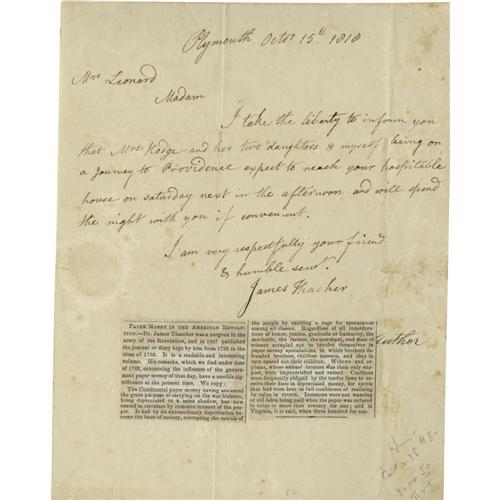 Plymouth Octor 15th 1818
Mrs Leonard
Madam
I take the liberty to inform you
that Mrs Hodge and her two daughters & myself being on
a journey to Providence expect to reach your hospitable
house on saturday next in the afternoon and will spend
the night with you if convenient.
I am very respectfully your friend
& humble servt.
James Thacher
Author
PAPER MONEY IN THE AMERICAN REVOLU-
TION.—Dr. James Thacher was a surgeon in the
army of the Revolution, and in 1827 published
the journal or diary kept by him from 1775 to the
close of 1783. It is a readable and interesting
volume. His remarks, which we find under date
of 1782, concerning the influence of the govern-
ment paper money of that day, have a terrible sig-
nificance at the present time. We copy:
The Continental paper money having answered
the great purpose of carrying on the war hitherto,
being depreciated to a mere shadow, has now
ceased to circulate by common consent of the peo-
ple. It had by its extraordinary depreciation be-
come the bane of society, corrupting the morals of
the people by exciting a rage for speculation
among all classes. Regardless of all considera-
tions of honor, justice, gratitude or humanity, the
merchant, the farmer, the merchant, and man of
science scrupled not to involve themselves in
paper money speculations, in which brothers de-
frauded brothers, children parents, and they in
turn spared not their children. Widows and or-
phans, whose annual interest was their only sup-
port, were impoverished and ruined. Creditors
were frequently obliged by the tender law to re-
ceive their dues in depreciated money, for specie
that had been lent in full confidence of realizing
its value in return. Instances were not wanting
of old debts being paid when the paper was reduced
in value to more than seventy for one; and in
Virginia, it is said, when three hundred for one.